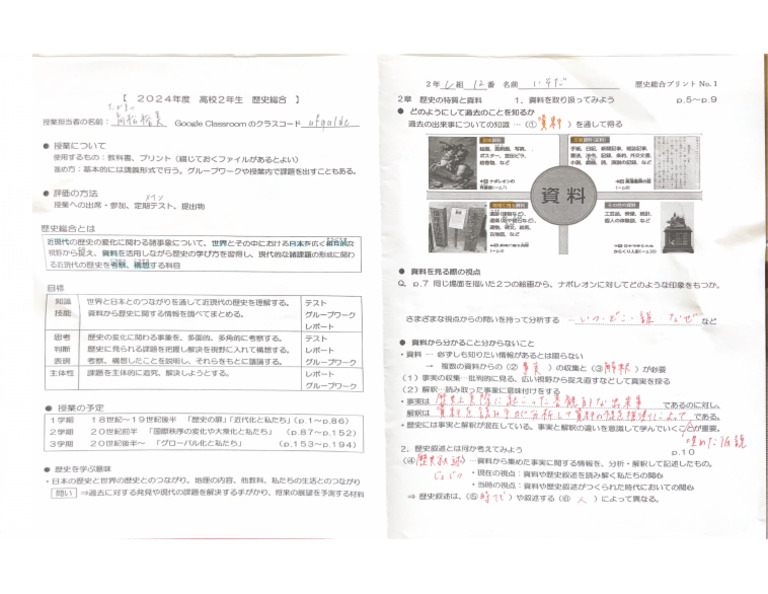 【 2024年度 高校2年生 歴史総合 】
授業担当者の名前： Google Classroomのクラスコード
● 授業について
使用するもの：教科書、プリント（綴じておくファイルがあるとよい）
進め方：基本的には講義形式で行う。グループワークや授業内で課題を出すこともある。
● 評価の方法
メイン
授業への出席・参加、定期テスト、提出物
歴史総合とは
近現代の歴史の変化に関わる諸事象について、世界とその中における日本を広く相互的な
視野から捉え、資料を活用しながら歴史の学び方を習得し、現代的な諸課題の形成に関わ
る近現代の歴史を考察、構想する科目
目標
知識 世界と日本とのつながりを通して近現代の歴史を理解する。 テスト
技能 資料から歴史に関する情報を調べてまとめる。 グループワーク
レポート
思考 歴史の変化に関わる事象を、多面的、多角的に考察する。 テスト
判断 歴史に見られる課題を把握し解決を視野に入れて構想する。 レポート
表現 考察、構想したことを説明し、それらをもとに議論する。 グループワーク
主体性 課題を主体的に追究、解決しようとする。 レポート
グループワーク
● 授業の予定
1学期 18世紀～19世紀後半 「歴史の扉」「近代化と私たち」（p.1～p.86）
2学期 20世紀前半 「国際秩序の変化や大衆化と私たち」（p.87～p.152）
3学期 20世紀後半～ 「グローバル化と私たち」（p.153～p.194）
● 歴史を学ぶ意味
・日本の歴史と世界の歴史とのつながり、地理の内容、他教科、私たちの生活とのつながり
問い ⇒過去に対する発見や現代の課題を解決する手がかり、将来の展望を予測する材料
2年 組 12番 名前 歴史総合プリント No.1
2章 歴史の特質と資料 1、資料を取り扱ってみよう p.5～p.9
● どのようにして過去のことを知るか
過去の出来事についての知識 …（① 資料 ）を通して得る
資料
● 資料を見る際の視点
Q. p.7 同じ場面を描いた2つの絵画から、ナポレオンに対してどのような印象をもつか。
さまざまな視点からの問いを持って分析する …いつ・どこ・誰・なぜ など
● 資料から分かること分からないこと
・資料 … 必ずしも知りたい情報があるとは限らない
→ 複数の資料からの（② 事実 ）の収集と（③ 解釈 ）が必要
（1）事実の収集…批判的に見る、広い視野から捉え直すなどして真実を探る
（2）解釈…読み取った事実に意味付けをする
・事実は 歴史上実際に起こった客観的な出来事 であるのに対し、
解釈は 資料を読み手が分析して である。
・歴史には事実と解釈が混在している。事実と解釈の違いを意識して学んでいくことが重要。
2、歴史叙述とは何か考えてみよう p.10
（④ 歴史叙述）…資料から集めた事実に関する情報を、分析・解釈して記述したもの。
じょじゅつ ・現在の視点：資料や歴史叙述を読み解く私たちの関心
・当時の視点：資料や歴史叙述がつくられた時代においての関心
⇒ 歴史叙述は、（⑤ 時代 ）や叙述する（⑥ 人 ）によって異なる。